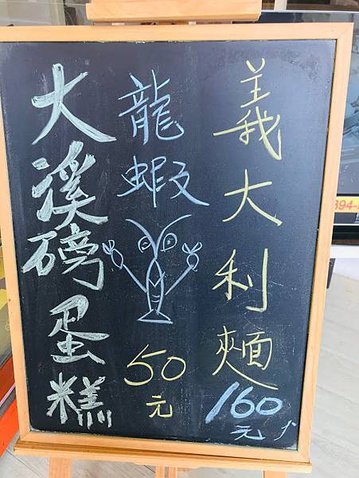 義大利麵
160元↑
龍蝦
50元
大溪磅蛋糕